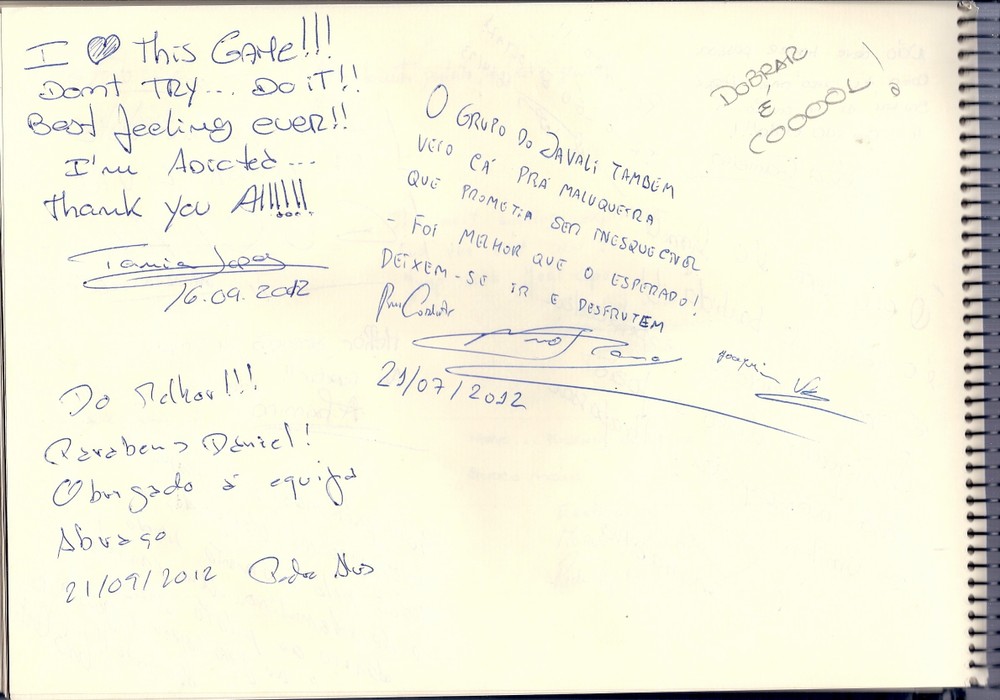 I ♥ This GAME!!!
Dont TRY... Do iT!!
Best feeling ever!!
I'm Adicted...
Thank you All!!!!!
Tania
16.09.2012
Do Melhor!!!
Parabens Daniel!
Obrigado á equipa
Abraço
21/09/2012 Pedro
O GRUPO DO JAVALI TAMBÉM
VEIO CÁ PRÁ MALUQUEIRA
QUE PROMETIA SER INESQUECÍVEL
- FOI MELHOR QUE O ESPERADO!
DEIXEM-SE IR E DESFRUTEM
Joaquim
21/07/2012
DOBRAR
É
COOOOL!